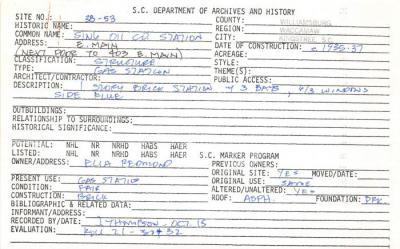 S.C. DEPARTMENT OF ARCHIVES AND HISTORY
SITE NO.: 28-53 COUNTY: WILLIAMSBURG
HISTORIC NAME: REGION: WACCAMAW
COMMON NAME: SING OIL CO STATION CITY: KINGSTREE, SC
ADDRESS: E. MAIN DATE OF CONSTRUCTION: c 1935-37
(NEXT DOOR TO 403 E. MAIN) ACREAGE:
CLASSIFICATION: STRUCTURE STYLE:
TYPE: GAS STATION THEME(S):
ARCHITECT/CONTRACTOR: PUBLIC ACCESS:
DESCRIPTION: STORY BRICK STATION W 3 BAYS, 4/3 WINDOWS
SIDE BLUE
OUTBUILDINGS:
RELATIONSHIP TO SURROUNDINGS:
HISTORICAL SIGNIFICANCE:
POTENTIAL: NHL NR NRHD HABS HAER
LISTED: NHL NR NRHD HABS HAER S.C. MARKER PROGRAM
OWNER/ADDRESS: ELLA REDMOND PREVIOUS OWNERS:
ORIGINAL SITE: YES MOVED/DATE:
PRESENT USE: GAS STATION ORIGINAL USE: SAME
CONDITION: FAIR ALTERED/UNALTERED: YES
CONSTRUCTION: BRICK ROOF: ASPH. FOUNDATION:
BIBLIOGRAPHIC & RELATED DATA:
INFORMANT/ADDRESS:
RECORDED BY/DATE: J THOMPSON OCT 15
EVALUATION: ROLL 21 - 32